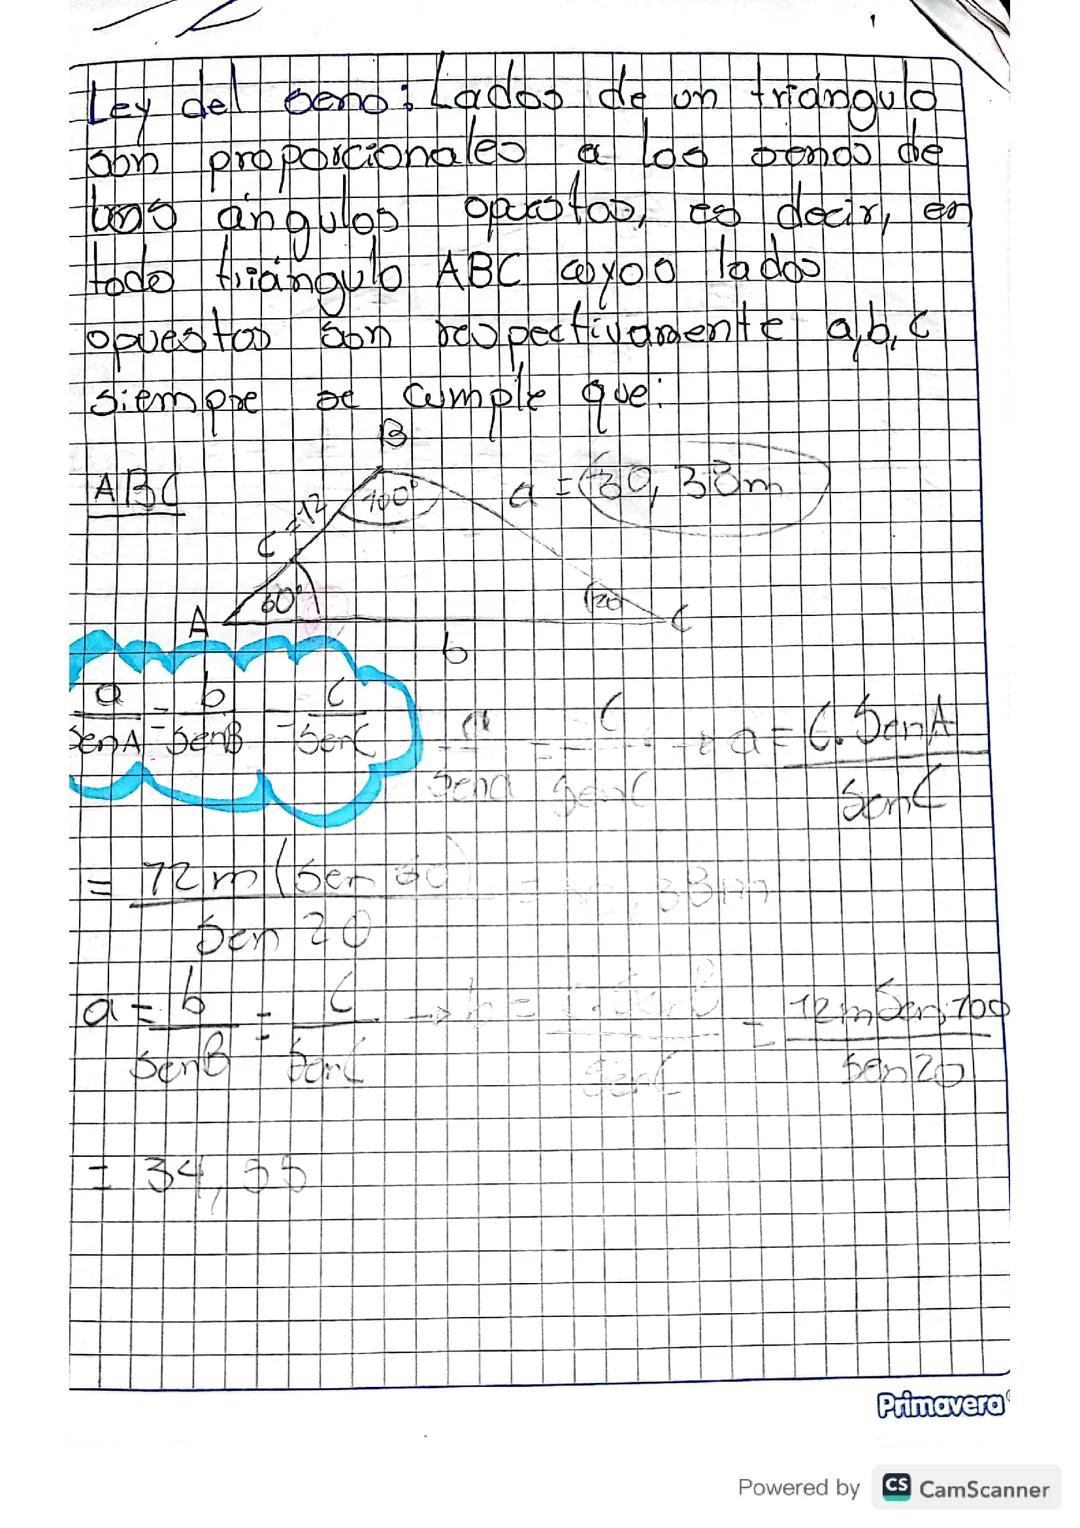 Ley del seno: Lados de un triángulo
son proporcionales a los senos de
los ángulos opuestos, es decir, en
todo triángulo ABC cuyos lados
opuestos son respectivamente a,b,c
siempre se cumple que:
B
ABC
100°
a = 30,38m
c=12
60°
20
A
C
b
a/SenA = b/SenB = c/SenC
a/Sena = c/SenC → a = C.SenA/SenC
= 12m (Sen 60)/Sen 20 = 38m
a = b/SenB = C/SenC → b = /SenC = 12m Sen 100/Sen 20
= 34,55
Primavera
Powered by CS CamScanner